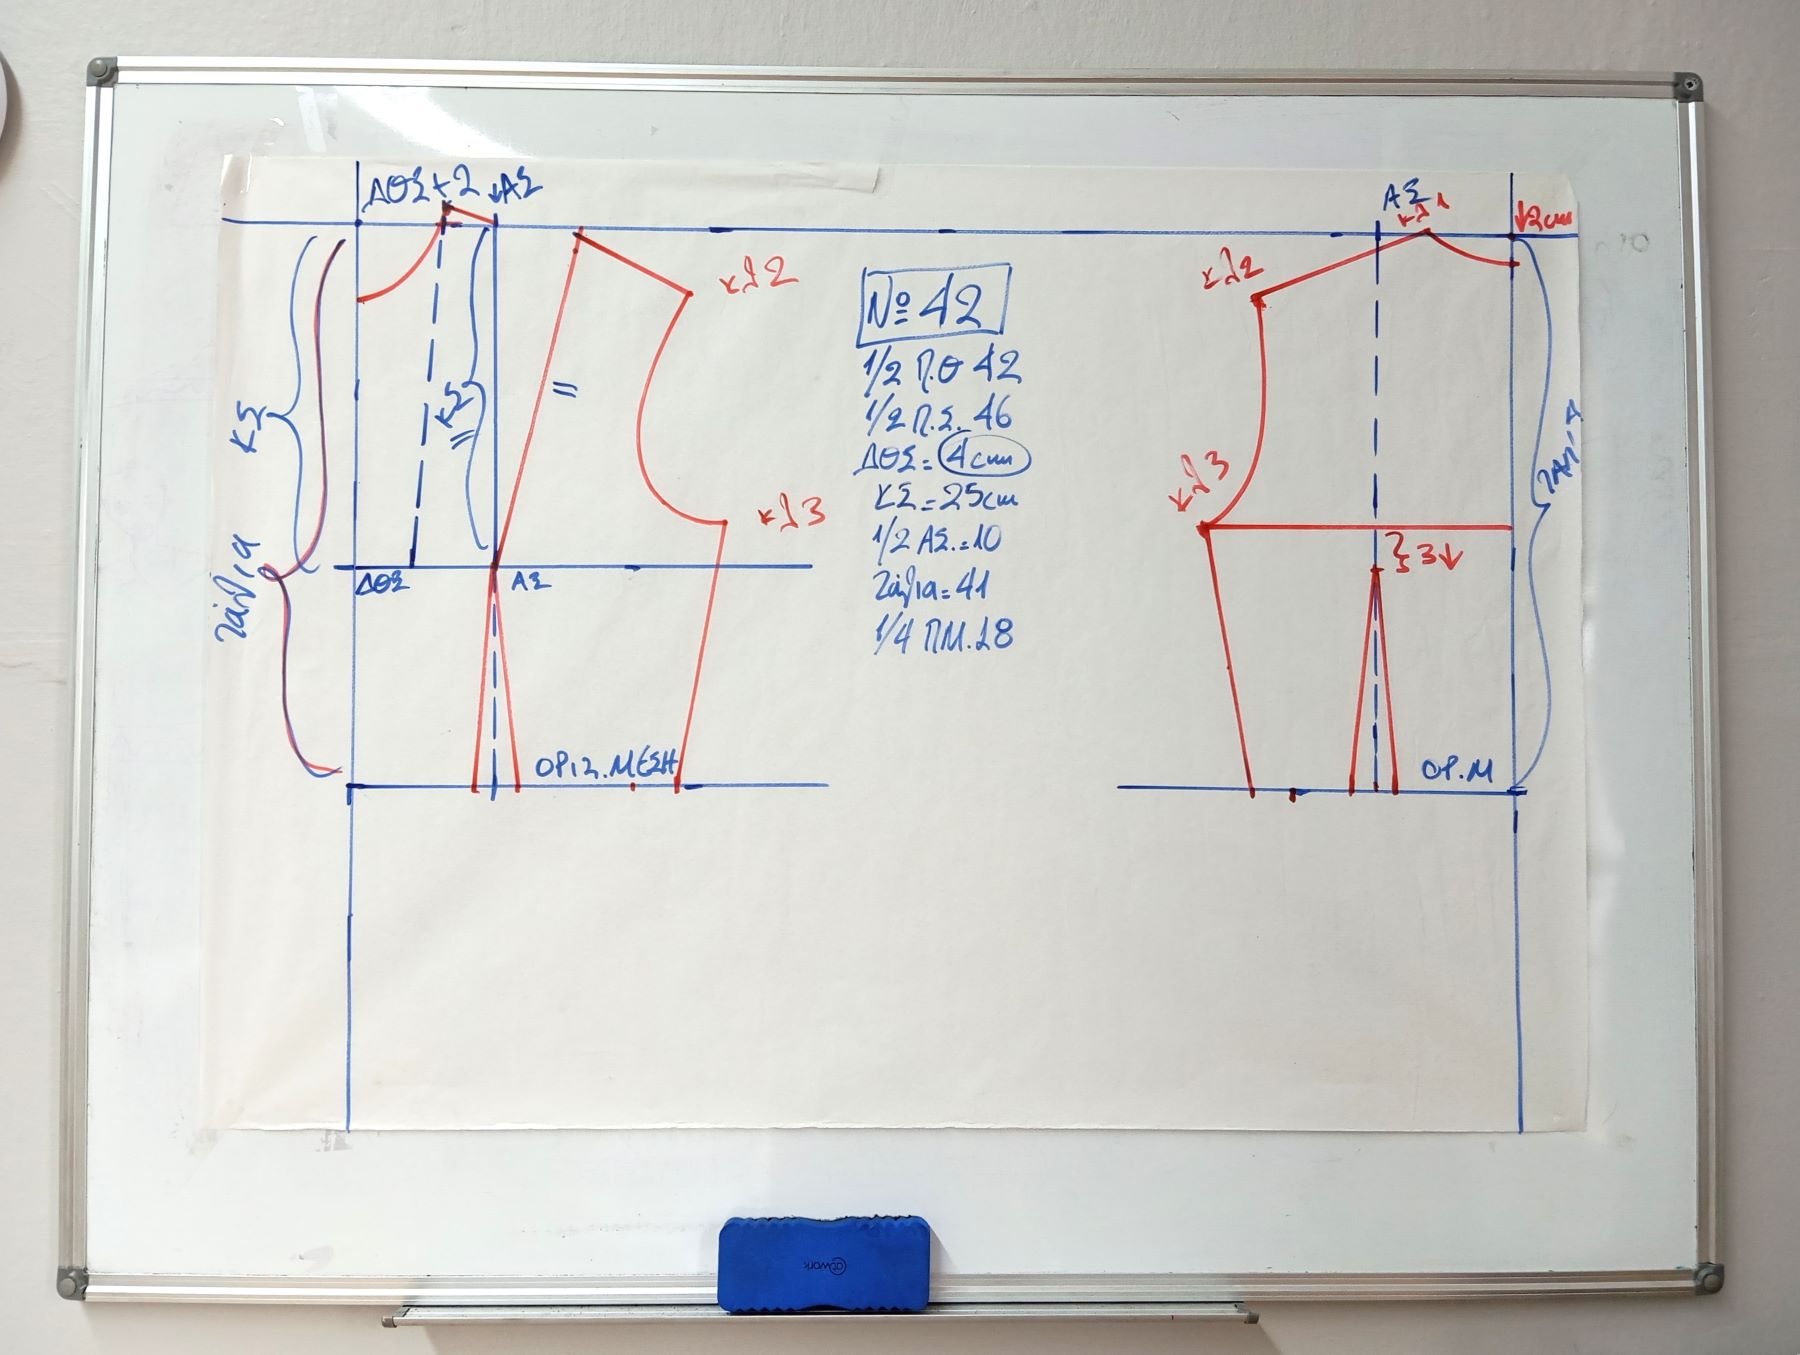 ΔΘΣ+2 ↓ΑΣ
ΚΣ
ΚΣ
=
=
κλ2
κλ3
ζάλια
ΔΘΣ
ΑΣ
ΟΡΙΖ.ΜΕΣΗ
Nº 42
1/2 Π.Θ 42
1/2 Π.Σ. 46
ΔΘΣ= 4cm
ΚΣ=25cm
1/2 ΑΣ.=10
Ζάλια=41
1/4 ΠΜ.18
ΑΣ
κλ1
↓2cm
κλ2
κλ3
3↓
ΟΡ.Μ
@work